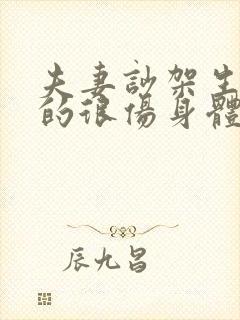 夫妻訪架生
的很傷身體
辰九昌